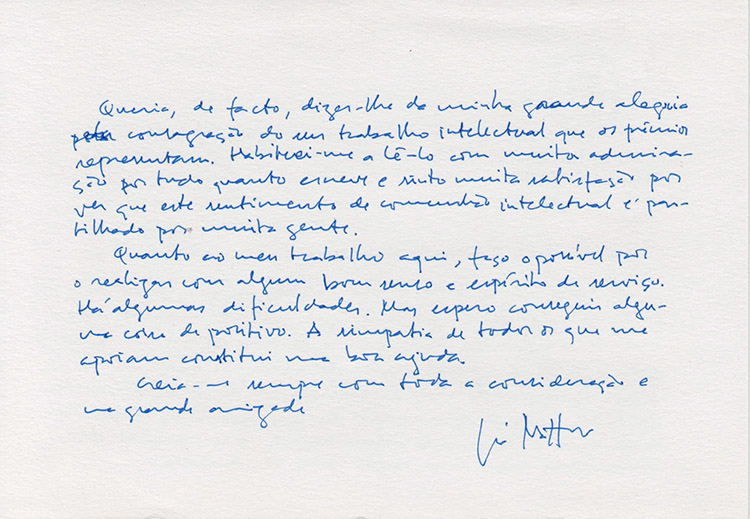 Queria, de facto, dizer-lhe da minha grande alegria
pela consagração do seu trabalho intelectual que os prémios
representam. Habituei-me a lê-lo com muita admira-
ção por tudo quanto escreve e sinto muita satisfação por
ver que este sentimento de comunhão intelectual é par-
tilhado por muita gente.
Quanto ao meu trabalho aqui, faço o possível por
o realizar com algum bom senso e espírito de serviço.
Há algumas dificuldades. Mas espero conseguir algu-
ma coisa de positivo. A simpatia de todos os que me
apoiam constitui uma boa ajuda.
Creia-me sempre com toda a consideração e
uma grande amizade